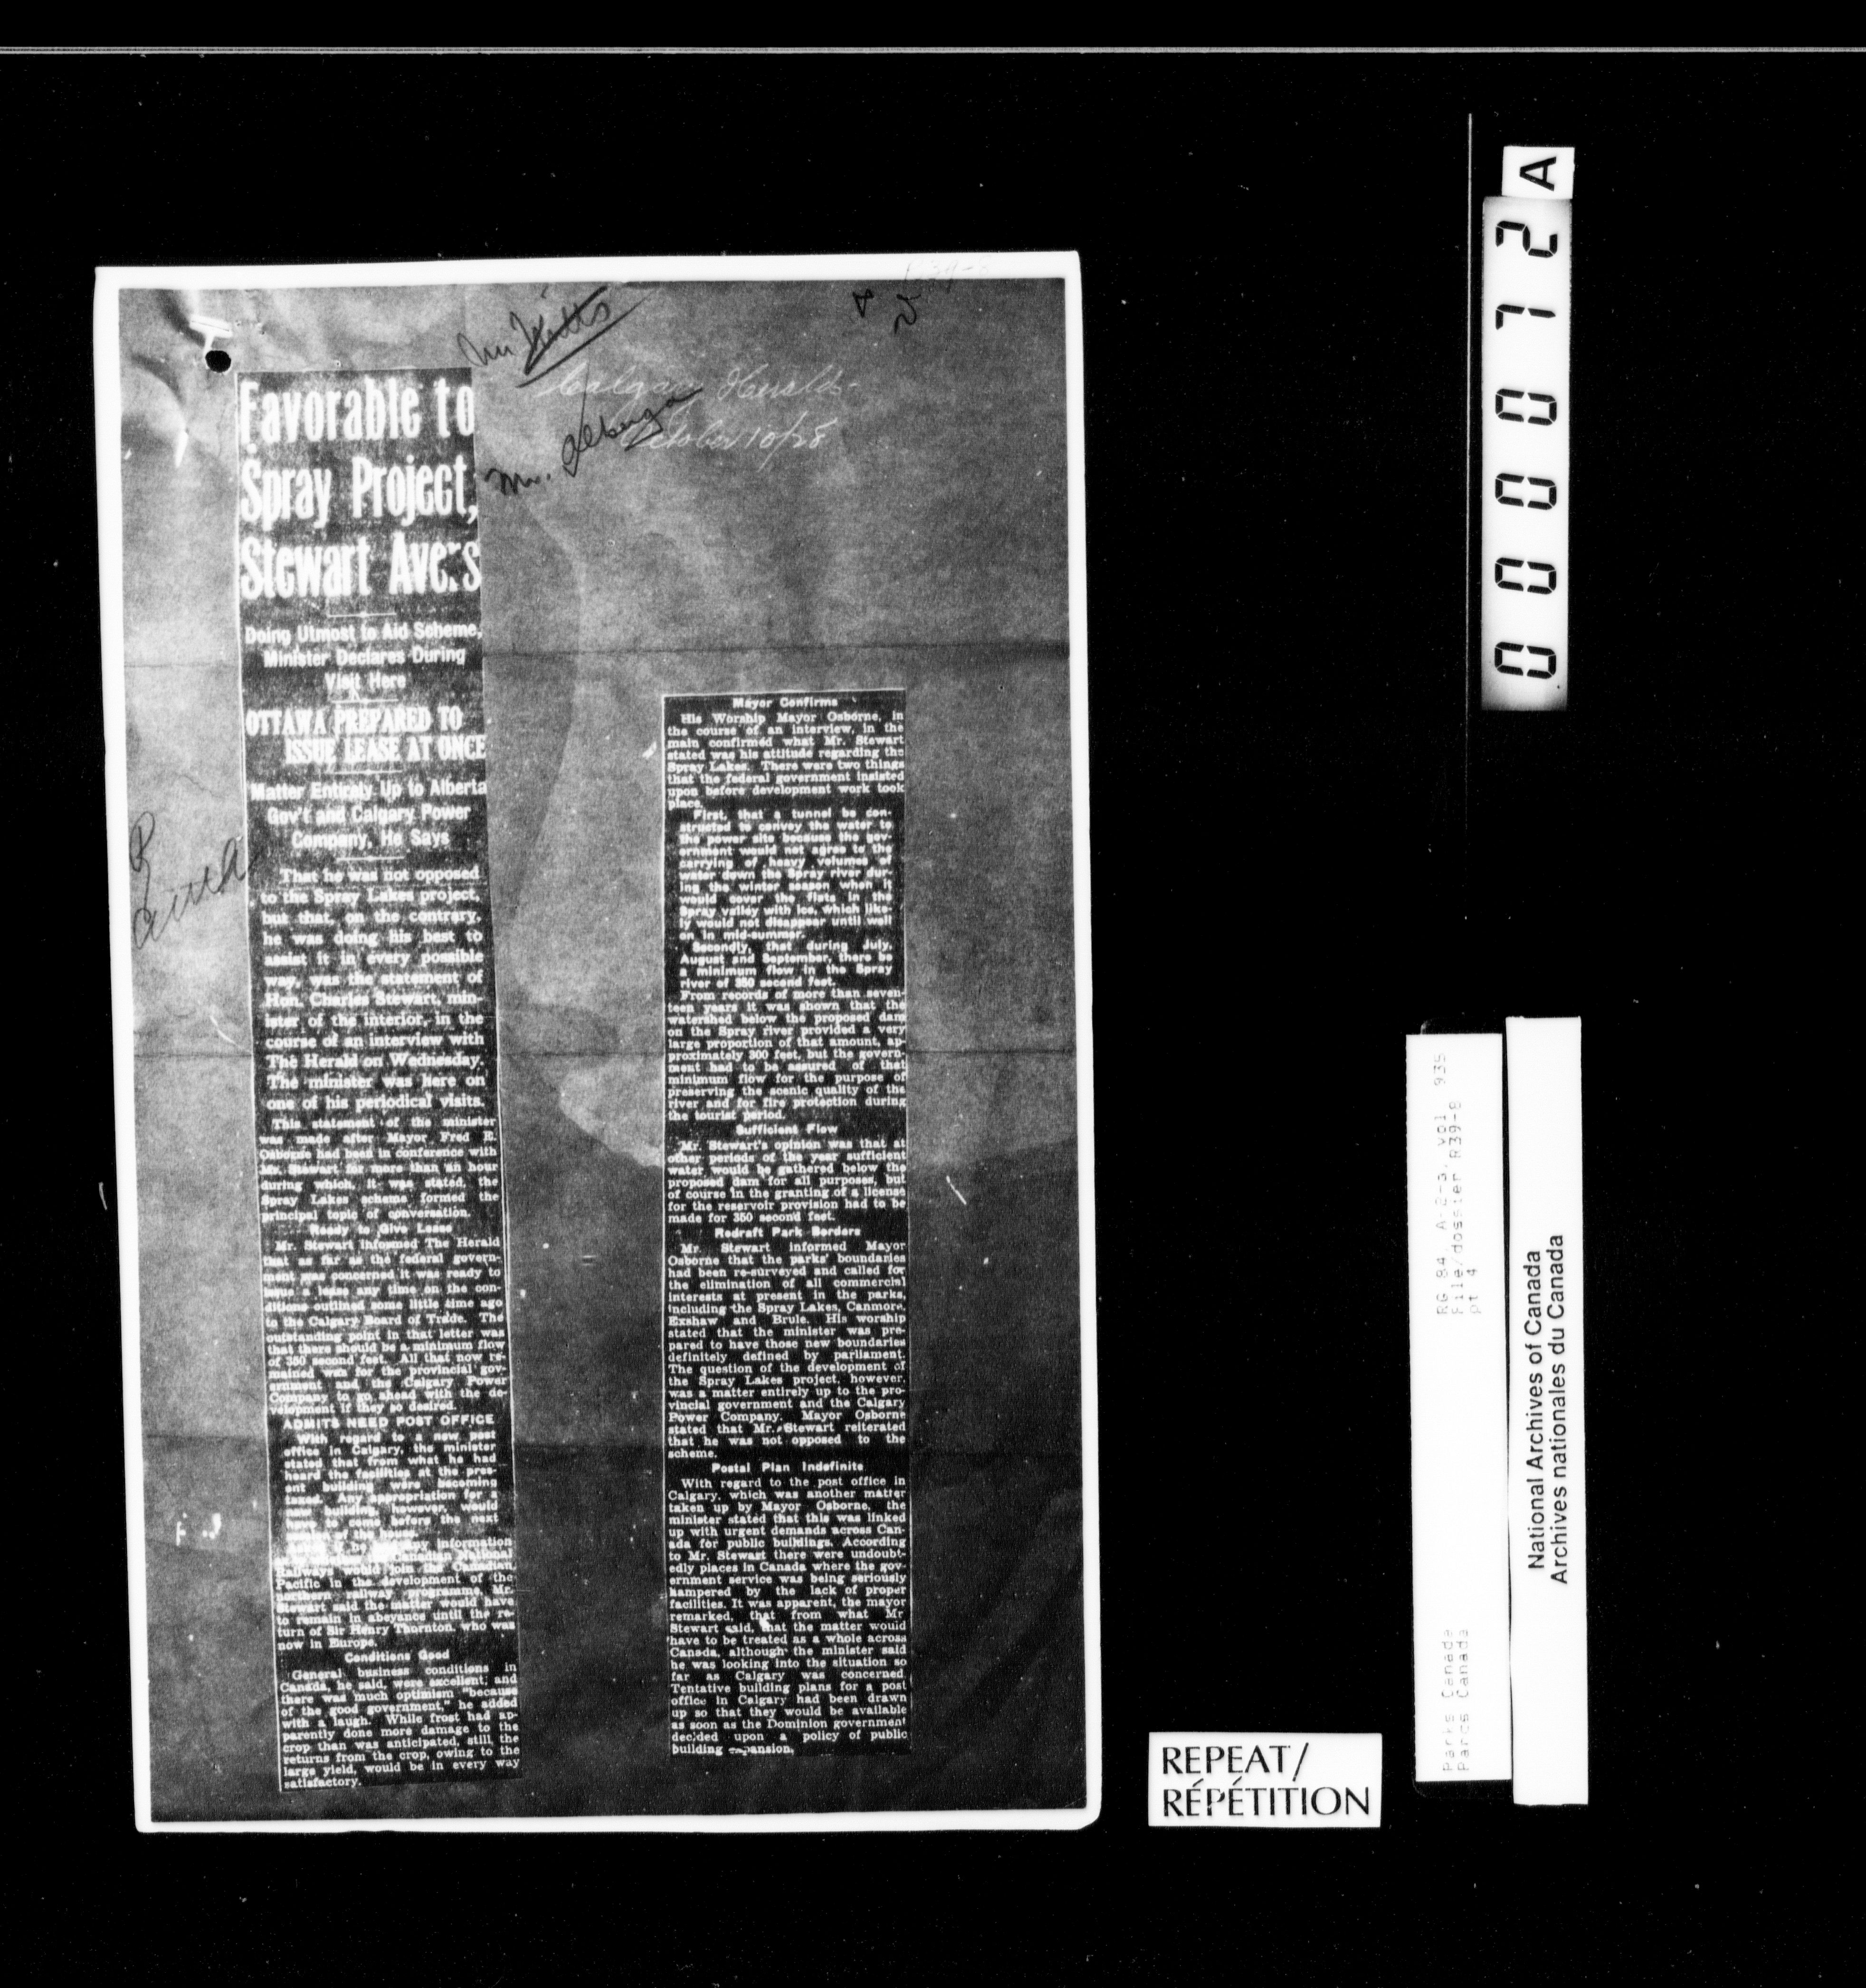 Mr.
Calgary Herald-
October 10/28
Mr.
Favorable to
Spray Project,
Stewart Avers
Doing Utmost to Aid Scheme,
Minister Declares During
Visit Here
OTTAWA PREPARED TO
ISSUE LEASE AT ONCE
Matter Entirely Up to Alberta
Gov't and Calgary Power
Company, He Says
That he was not opposed
to the Spray Lakes project,
but that, on the contrary,
he was doing his best to
assist it in every possible
way, was the statement of
Hon. Charles Stewart, min-
ister of the interior, in the
course of an interview with
The Herald on Wednesday.
The minister was here on
one of his periodical visits.
This statement of the minister
was made after Mayor Fred E.
Osborne had been in conference with
Mr. Stewart for more than an hour
during which, it was stated, the
Spray Lakes scheme formed the
principal topic of conversation.
Ready to Give Lease
Mr. Stewart informed The Herald
that as far as the federal govern-
ment was concerned it was ready to
issue a lease any time on the con-
ditions outlined some little time ago
to the Calgary Board of Trade. The
outstanding point in that letter was
that there should be a minimum flow
of 350 second feet. All that now re-
mained was for the provincial gov-
ernment and the Calgary Power
Company to go ahead with the de-
velopment if they so desired.
ADMITS NEED POST OFFICE
With regard to a new post
office in Calgary, the minister
stated that from what he had
heard the facilities at the pres-
ent building were becoming
taxed. Any appropriation for a
new building, however, would
have to come before the next
of the house.
he any information
Canadian National
Railways would join the Canadian
Pacific in the development of the
northern railway programme, Mr.
Stewart said the matter would have
to remain in abeyance until the re-
turn of Sir Henry Thornton, who was
now in Europe.
Conditions Good
General business conditions in
Canada, he said, were excellent, and
there was much optimism "because
of the good government," he added
with a laugh. While frost had ap-
parently done more damage to the
crop than was anticipated, still the
returns from the crop, owing to the
large yield, would be in every way
satisfactory.
Mayor Confirms
His Worship Mayor Osborne, in
the course of an interview, in the
main confirmed what Mr. Stewart
stated was his attitude regarding the
Spray Lakes. There were two things
that the federal government insisted
upon before development work took
place.
First, that a tunnel be con-
structed to convey the water to
the power site because the gov-
ernment would not agree to the
carrying of heavy volumes of
water down the Spray river dur-
ing the winter season when it
would cover the flats in the
Spray valley with ice, which like-
ly would not disappear until well
on in mid-summer.
Secondly, that during July,
August and September, there be
a minimum flow in the Spray
river of 350 second feet.
From records of more than seven-
teen years it was shown that the
watershed below the proposed dam
on the Spray river provided a very
large proportion of that amount, ap-
proximately 300 feet, but the govern-
ment had to be assured of that
minimum flow for the purpose of
preserving the scenic quality of the
river and for fire protection during
the tourist period.
Sufficient Flow
Mr. Stewart's opinion was that at
other periods of the year sufficient
water would be gathered below the
proposed dam for all purposes, but
of course in the granting of a license
for the reservoir provision had to be
made for 350 second feet.
Redraft Park Borders
Mr. Stewart informed Mayor
Osborne that the parks' boundaries
had been re-surveyed and called for
the elimination of all commercial
interests at present in the parks,
including the Spray Lakes, Canmore,
Exshaw and Brule. His worship
stated that the minister was pre-
pared to have those new boundaries
definitely defined by parliament.
The question of the development of
the Spray Lakes project, however,
was a matter entirely up to the pro-
vincial government and the Calgary
Power Company. Mayor Osborne
stated that Mr. Stewart reiterated
that he was not opposed to the
scheme.
Postal Plan Indefinite
With regard to the post office in
Calgary, which was another matter
taken up by Mayor Osborne, the
minister stated that this was linked
up with urgent demands across Can-
ada for public buildings. According
to Mr. Stewart there were undoubt-
edly places in Canada where the gov-
ernment service was being seriously
hampered by the lack of proper
facilities. It was apparent, the mayor
remarked, that from what Mr
Stewart said, that the matter would
have to be treated as a whole across
Canada, although the minister said
he was looking into the situation so
far as Calgary was concerned.
Tentative building plans for a post
office in Calgary had been drawn
up so that they would be available
as soon as the Dominion government
decided upon a policy of public
building expansion.
REPEAT/
RÉPÉTITION
000072 A
RG 84, A-2-a, vol 935
File/dossier R39-8
pt 4
Parks Canada
Parcs Canada
National Archives of Canada
Archives nationales du Canada